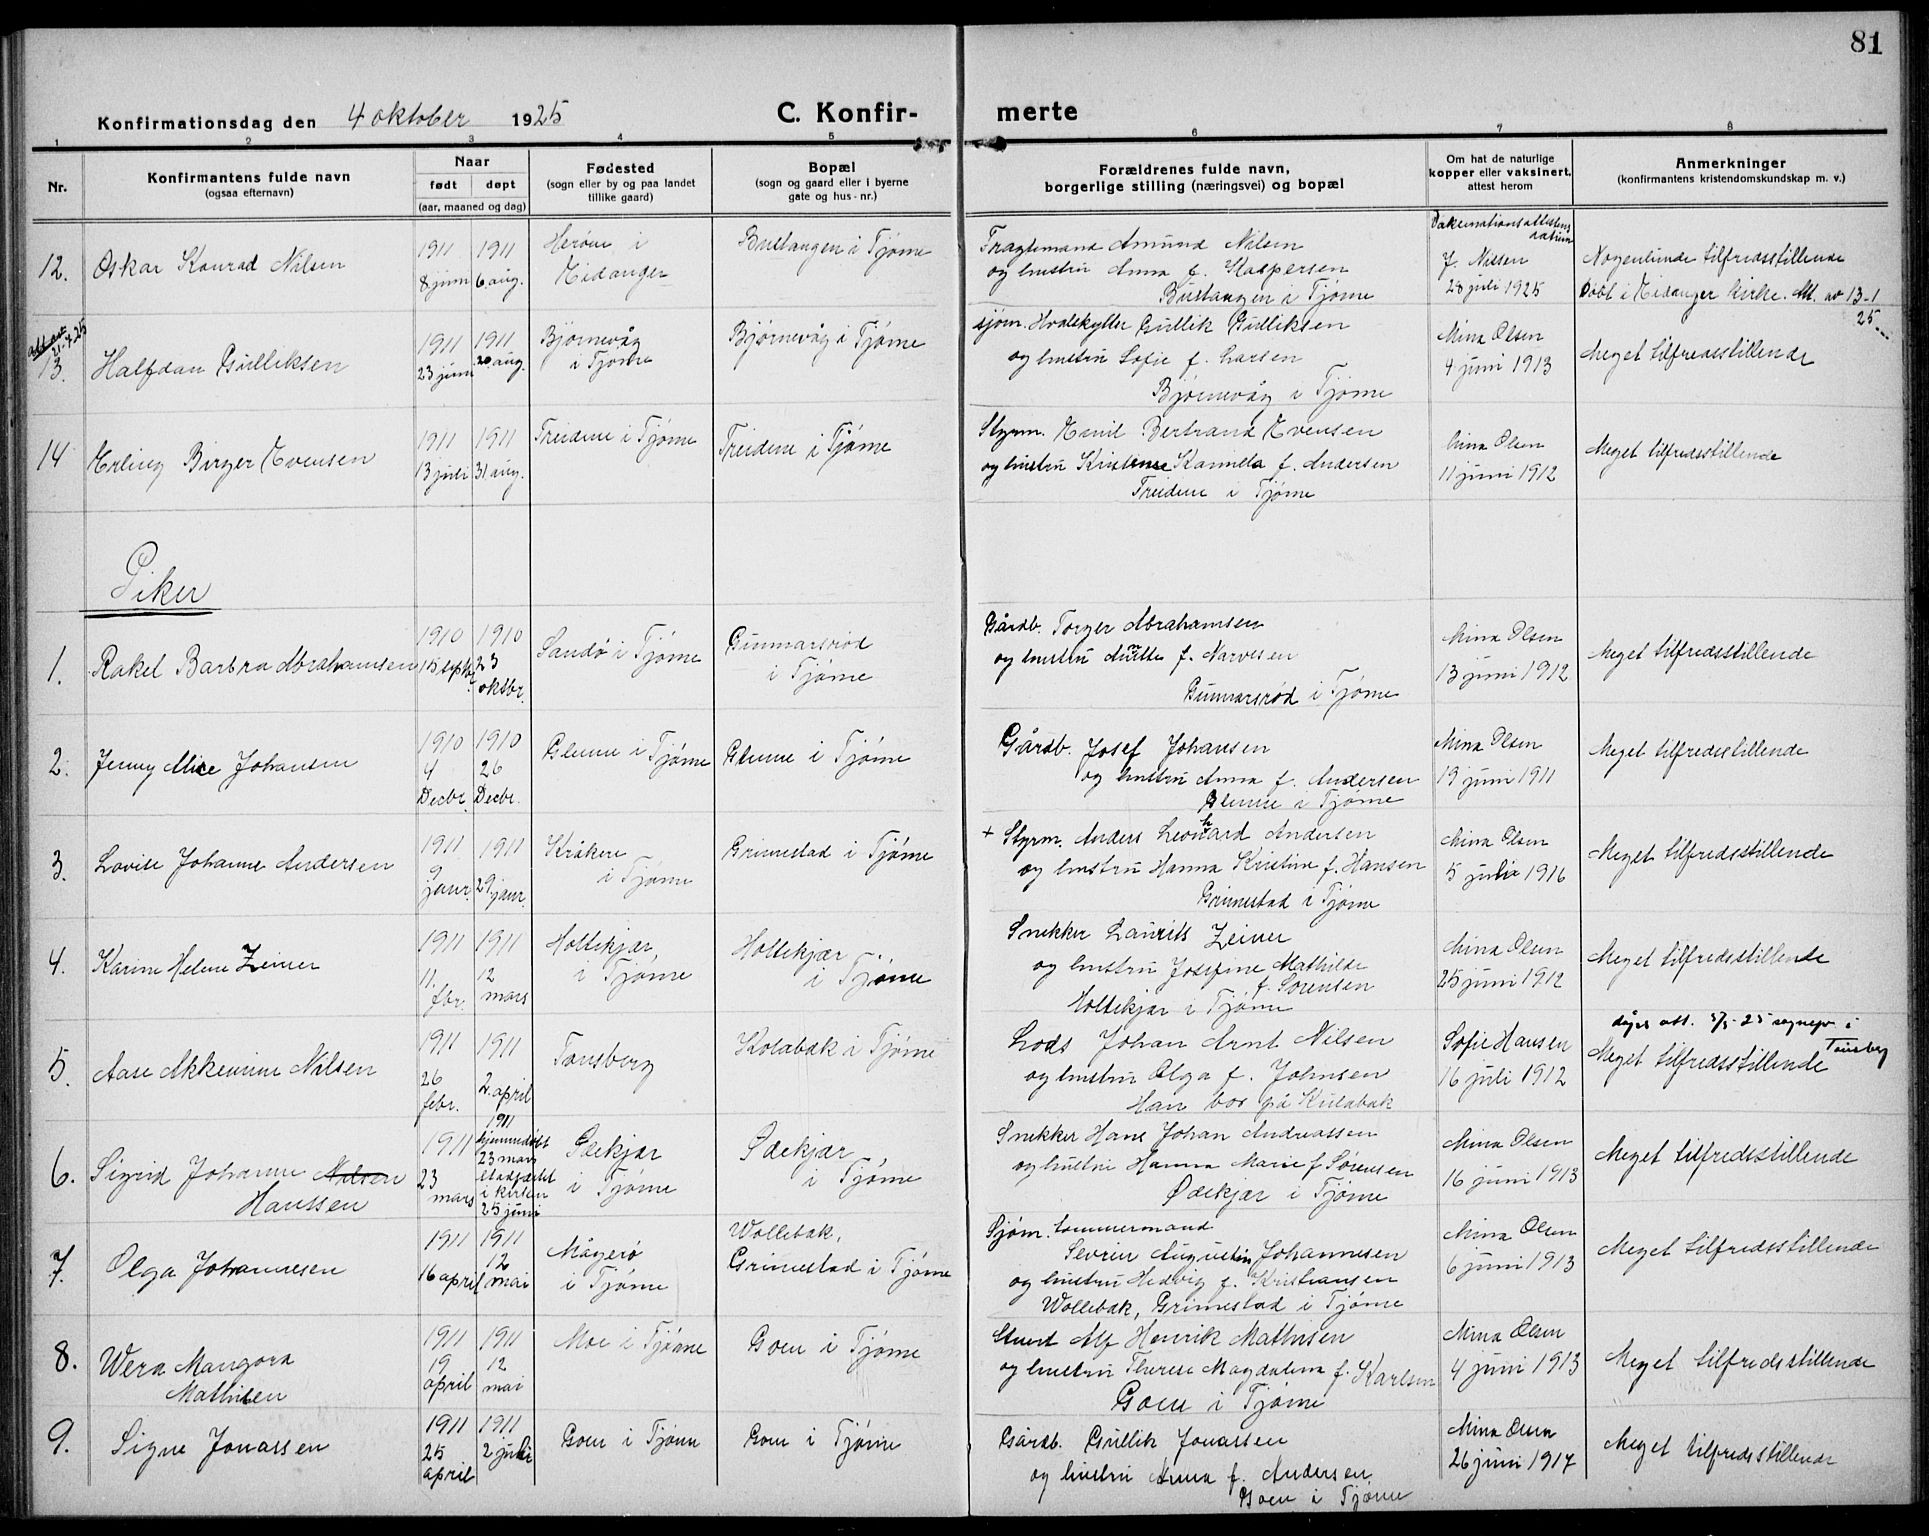 81
Konfirmationsdag den 4 oktober 1925
C. Konfir- merte
1 2 3 4 5 6 7 8
Nr.
Konfirmantens fulde navn
(ogsaa efternavn)
Naar
født døpt
(aar, maaned og dag)
Fødested
(sogn eller by og paa landet
tillike gaard)
Bopæl
(sogn og gaard eller i byerne
gate og hus-nr.)
Forældrenes fulde navn,
borgerlige stilling (næringsvei) og bopæl
Om hat de naturlige
kopper eller vaksinert,
attest herom
Anmerkninger
(konfirmantens kristendomskundskap m. v.)
12. Oskar Konrad Nilsen
1911 8 juni
1911 6 aug.
Herøen i
Eidanger
Bustangen i Tjøme
Fragtemand Amund Nilsen
og hustru Anna f. Kaspersen
Bustangen i Tjøme
Vaksinationsattestens
datum
J. Nilsen
28 juli 1925
Nogenlunde tilfredsstillende
Døbt i Eidanger kirke. Att. av 13-1
25
att. av
21-4-25
13. Halfdan Gulliksen
1911 23 juni
1911 20 aug.
Bjørnevåg
i Tjøme
Bjørnevåg i Tjøme
sjøm. Hvalskytter Gullik Gulliksen
og hustru Sofie f. Larsen
Bjørnevåg i Tjøme
Mina Olsen
4 juni 1913
Meget tilfredsstillende
14 Erling Birger Evensen
1911 13 juli
1911 31 aug.
Treidene i Tjøme
Treidene i Tjøme
Styrm. Emil Bertrand Evensen
og hustru Kristense Kamilla f. Andersen
Treidene i Tjøme
Mina Olsen
11 juni 1912
Meget tilfredsstillende
Piker
1. Rakel Barbra Abrahamsen
1910 15 septbr.
1910 23 oktbr.
Sandø i Tjøme
Gunnarsrød
i Tjøme
Gårdb. Torger Abrahamsen
og hustru Anette f. Narvesen
Gunnarsrød i Tjøme
Mina Olsen
13 juni 1912
Meget tilfredsstillende
2. Jenny Alice Johansen
1910 4 Decbr.
1910 26 Decbr.
Glenne i Tjøme
Glenne i Tjøme
Gårdb. Josef Johansen
og hustru Anna f. Andersen
Glenne i Tjøme
Mina Olsen
19 juni 1911
Meget tilfredsstillende
3. Lovise Johanne Andersen
1911 9 janr.
1911 29 janr.
Kråkere
i Tjøme
Grimestad i Tjøme
+ Styrm. Anders Leonhard Andersen
og hustru Hanna Kristine f. Hansen
Grimestad i Tjøme
Mina Olsen
5 juli 1916
Meget tilfredsstillende
4. Karine Helene Zeiner
1911 11. fbr.
1911 12 mars
Holtekjær
i Tjøme
Holtekjær
i Tjøme
Snekker Laurits Zeiner
og hustru Josefine Mathilde
f. Sørensen
Holtekjær i Tjøme
Mina Olsen
25 juni 1912
Meget tilfredsstillende
5. Aase Akkemine Nilsen
1911 26 febr.
1911 2. april
Tønsberg
Kolabæk i Tjøme
Lods Johan Arnt Nilsen
og hustru Olga f. Johnsen
Han bor på Kulabak
Sofie Hansen
16 juli 1912
døpt att. 5/5-25 sognepr. i
Tønsberg
Meget tilfredsstillende
6. Sigrid Johanne Nilsen
Hanssen
1911 23 mars
1911
hjemmedøbt
23 mars
stadfæstet
i kirken
25 juni
Ødekjær
i Tjøme
Ødekjær
i Tjøme
Snekker Hans Johan Andreassen
og hustru Hanna Marie f. Sørensen
Ødekjær i Tjøme
Mina Olsen
16 juni 1913
Meget tilfredsstillende
7. Olga Johannesen
1911 16 april
1911 12 mai
Mågerø
i Tjøme
Wollebæk,
Grimestad i Tjøme
Sjøm. tømmermand
Severin Augustin Johannesen
og hustru Hedvig f. Kristiansen
Wollebæk, Grimestad i Tjøme
Mina Olsen
6 juni 1913
Meget tilfredsstillende
8. Wera Mangora
Mathisen
1911 19 april
1911 12 mai
Moe i Tjøme
Goen i Tjøme
Stuert Alf Henrik Mathisen
og hustru Therese Magdalena f. Karlsen
Goen i Tjøme
Mina Olsen
4 juni 1913
Meget tilfredsstillende
9. Signe Jonassen
1911 25 april
1911 2 juli
Goen i Tjøme
Goen i Tjøme
Gårdb. Gullik Jonassen
og hustru Anna f. Andersen
Goen i Tjøme
Mina Olsen
26 juni 1917
Meget tilfredsstillende